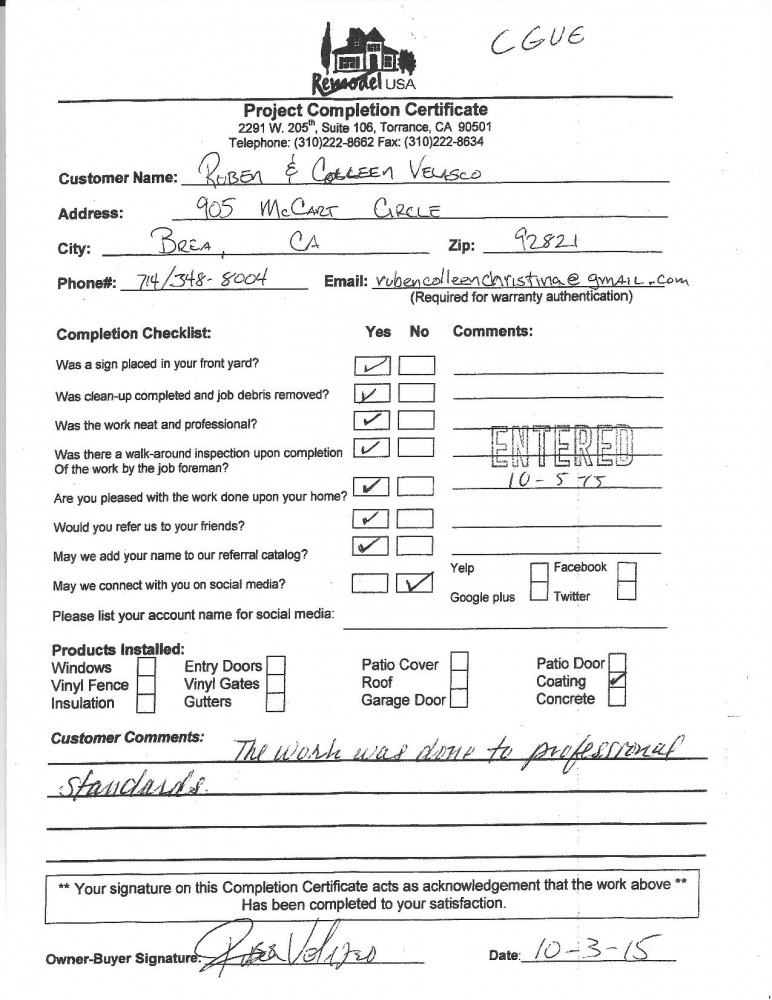 CGUE
Remodel USA
Project Completion Certificate
2291 W. 205th, Suite 106, Torrance, CA 90501
Telephone: (310)222-8662 Fax: (310)222-8634
Customer Name: Ruben & Colleen Velasco
Address: 905 McCart Circle
City: Brea, CA Zip: 92821
Phone#: 714/348-8004 Email: rubencolleenchristina@gmail.com
(Required for warranty authentication)
Completion Checklist: Yes No Comments:
Was a sign placed in your front yard?
Was clean-up completed and job debris removed?
Was the work neat and professional?
Was there a walk-around inspection upon completion
Of the work by the job foreman?
ENTERED
10-5-15
Are you pleased with the work done upon your home?
Would you refer us to your friends?
May we add your name to our referral catalog?
May we connect with you on social media? Yelp Facebook
Google plus Twitter
Please list your account name for social media:
Products Installed:
Windows Entry Doors Patio Cover Patio Door
Vinyl Fence Vinyl Gates Roof Coating
Insulation Gutters Garage Door Concrete
Customer Comments: The work was done to professional
standards.
** Your signature on this Completion Certificate acts as acknowledgement that the work above **
Has been completed to your satisfaction.
Owner-Buyer Signature: Ruben Velasco Date: 10-3-15